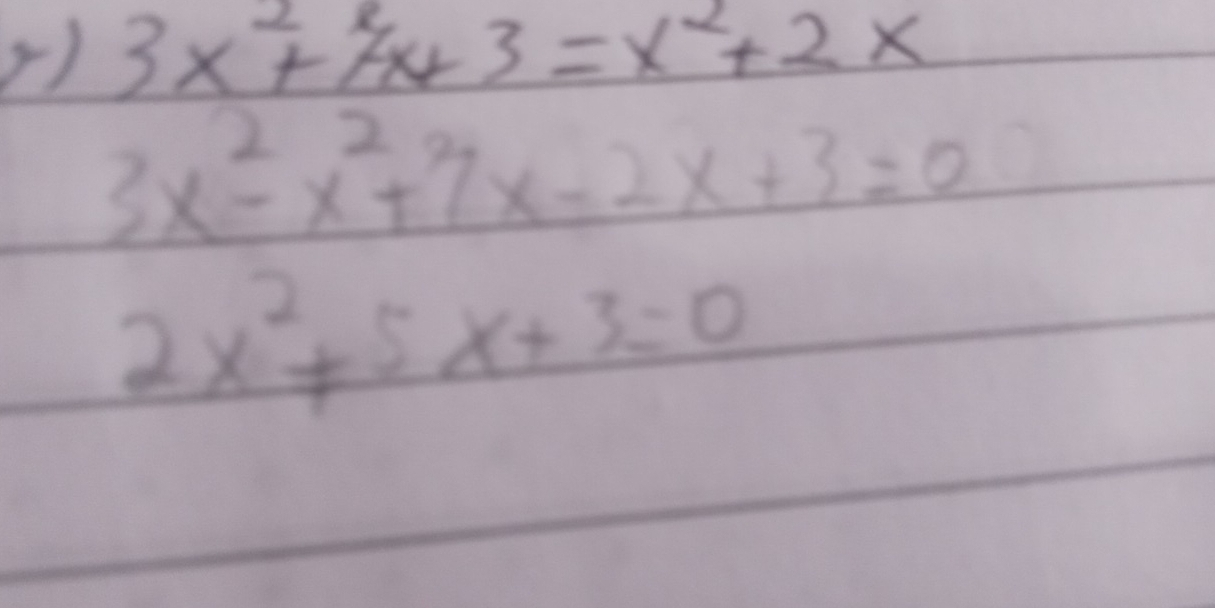 r) 3x² + 7x + 3 = x² + 2x
3x² - x² + 7x - 2x + 3 = 0
2x² + 5x + 3 = 0